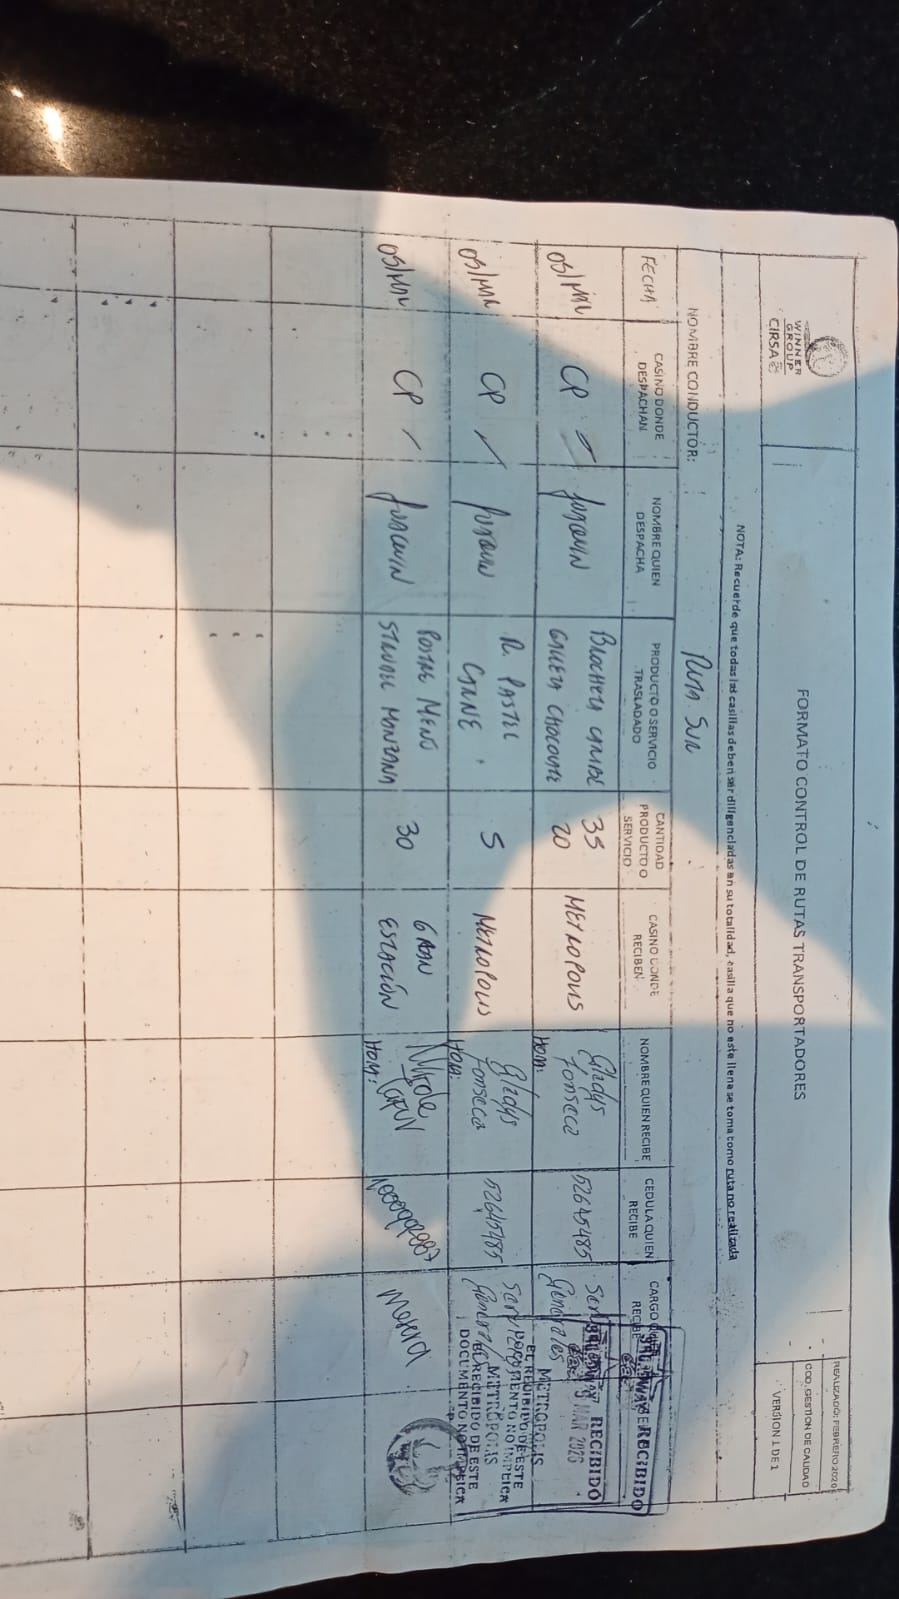 WINNER
GROUP
CIRSA
FORMATO CONTROL DE RUTAS TRANSPORTADORES
REALIZADO: FEBRERO 2020
COD. GESTION DE CALIDAD
VERSION 1 DE 1
NOTA: Recuerde que todas las casillas deben ser diligenciadas en su totalidad, casilla que no este llena se toma como ruta no realizada
NOMBRE CONDUCTOR: RUTA SUR
FECHA
CASINO DONDE DESPACHAN
NOMBRE QUIEN DESPACHA
PRODUCTO O SERVICIO TRASLADADO
CANTIDAD PRODUCTO O SERVICIO
CASINO DONDE RECIBEN
NOMBRE QUIEN RECIBE
CEDULA QUIEN RECIBE
CARGO RECIBE
RECIBIDO
CP
BROCHETA
GALLETA CHOCOLATE
35
20
METROPOLIS
Gladys
Fonseca
52645485
Generales
RECIBIDO
MAR
METROPOLIS
EL RECIBIDO DE ESTE
DOCUMENTO NO IMPLICA
CP
R. PASTEL
CARNE
5
METROPOLIS
Gladys
Fonseca
52645485
METROPOLIS
EL RECIBIDO DE ESTE
DOCUMENTO NO IMPLICA
CP
POSTRE MENÚ
STRUDEL MANZANA
30
GRAN
ESTACIÓN
Mesera